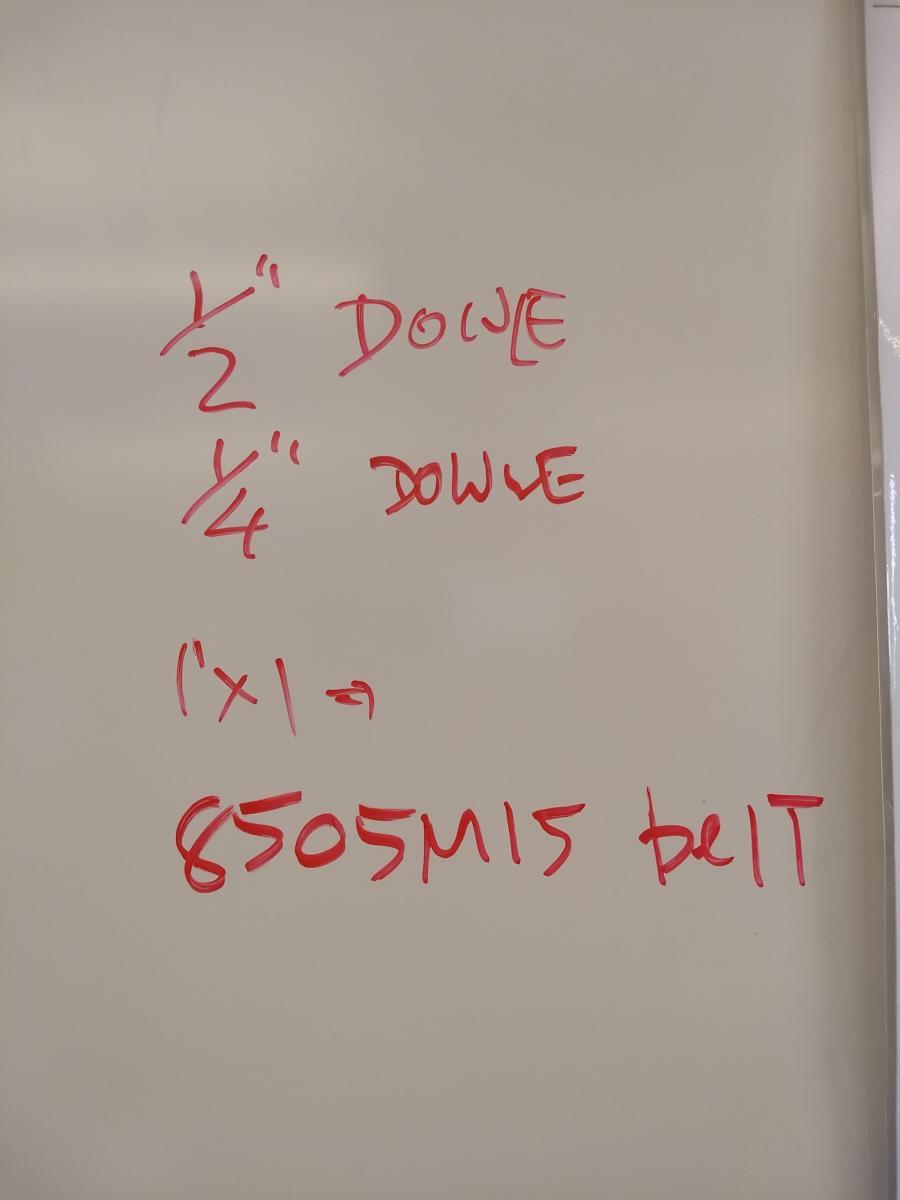 1/2" DOWLE
1/4" DOWLE
1"x1 →
8505M15 belT